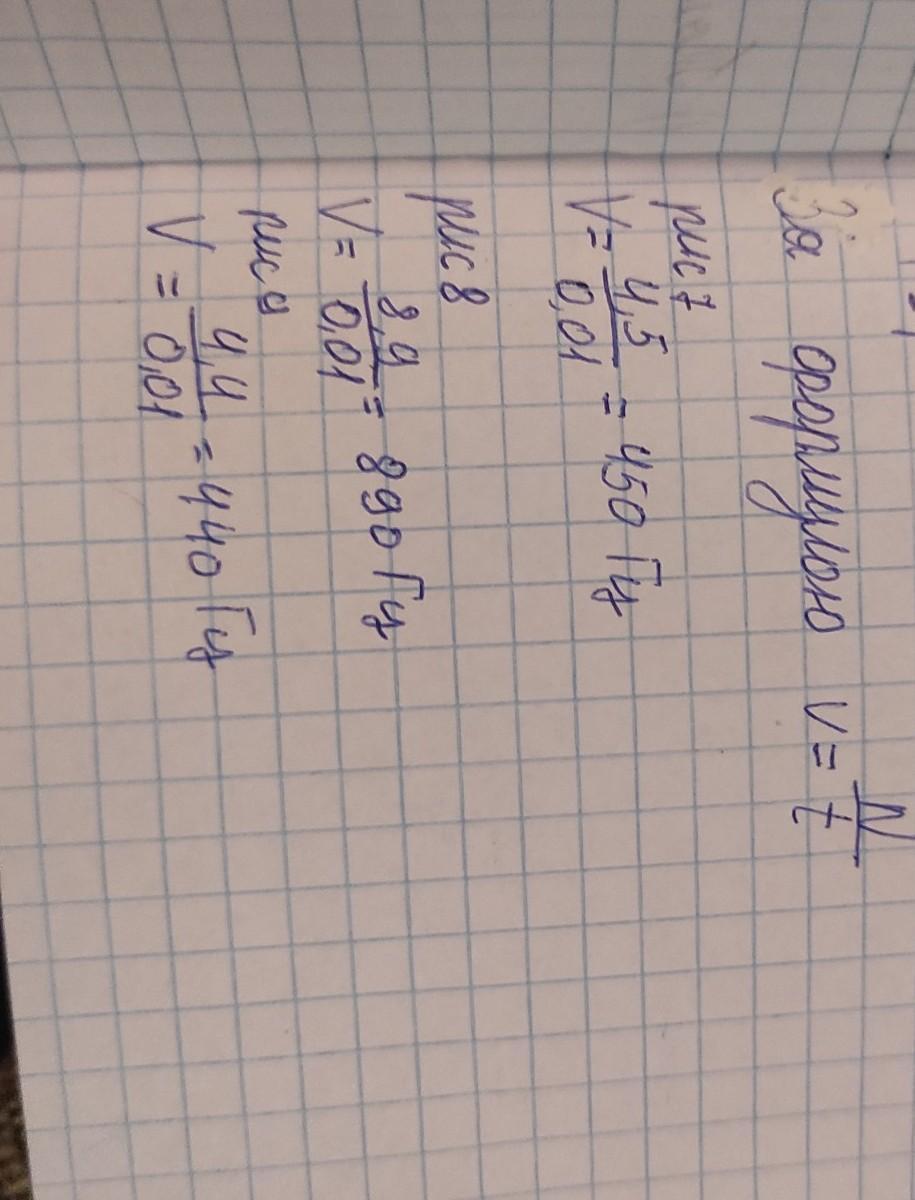 За формулою ν = N/t
рис 7
V = 4,5/0,01 = 450 Гц
рис 8
V = 8,9/0,01 = 890 Гц
рис 9
V = 4,4/0,01 = 440 Гц